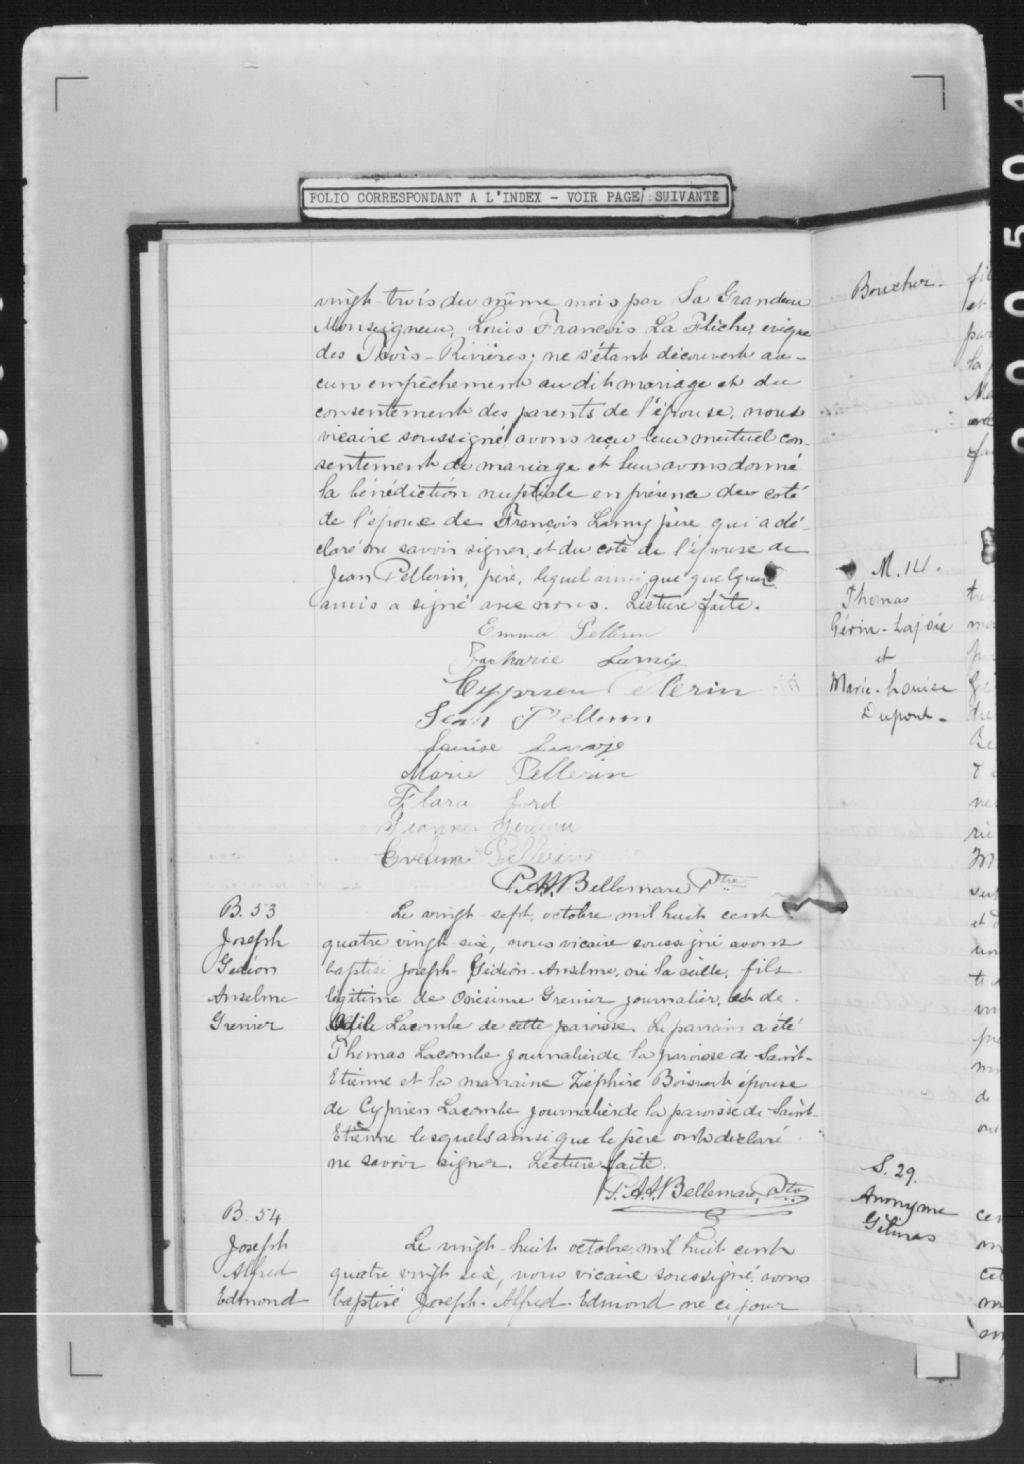 FOLIO CORRESPONDANT A L'INDEX - VOIR PAGE SUIVANTE
vingt-trois du même mois par Sa Grandeur
Monseigneur, Louis François La Flèche, évêque
des Trois-Rivières; ne s'étant découvert au-
cun empêchement au dit mariage et du
consentement des parents de l'épouse, nous
vicaire soussigné, avons reçu leur mutuel con-
sentement de mariage et leur avons donné
la bénédiction nuptiale en présence du coté
de l'époux de François Lamy père qui a dé-
claré ne savoir signer, et du coté de l'épouse de
Jean Pellerin, père, lequel ainsi que quelques
amis a signé avec nous. Lecture faite.
Emma Pellerin
Zacharie Lamy
Cyprien Pellerin
Jean Pellerin
Louise
Marie Pellerin
Flora Lord
Pellerin
P.A.A. Bellemare Ptre
B. 53
Joseph
Gédéon
Anselme
Grenier
Le vingt-sept, octobre mil huit cent
quatre vingt-six, nous vicaire soussigné avons
baptisé Joseph-Gédéon-Anselme, né la veille, fils
légitime de Onésime Grenier journalier, et de
Odile Lacombe de cette paroisse. Le parrain a été
Thomas Lacombe journalier de la paroisse de Saint-
Etienne et la marraine Zéphire Boisvert épouse
de Cyprien Lacombe journalier de la paroisse de Saint-
Etienne lesquels ainsi que le père ont déclaré
ne savoir signer. Lecture faite.
P.A.A. Bellemare, Ptre
B. 54
Joseph
Alfred
Edmond
Le vingt-huit octobre, mil huit cent
quatre vingt six, nous vicaire soussigné, avons
baptisé Joseph-Alfred-Edmond né ce jour
Boucher.
M. 14.
Thomas
Gérin-Lajoie
et
Marie-Louise
Dupont.
S. 29.
Anonyme
Gélinas